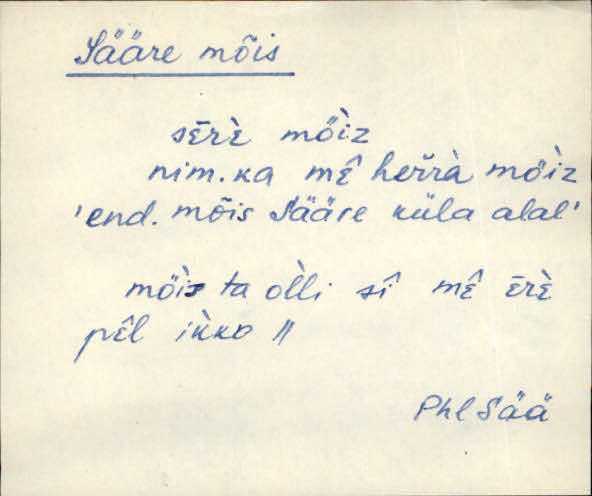 Sääre mõis
sɛ̄rɛ̀ mö̀iz
nim. ka mɛ̂ herrà mö̀iz
'end. mõis Sääre küla alal'
mö̀is ta òlli sî mɛ̂ ɛ̄rɛ̀
pɛ̂l ìkko ||
Phl Sää